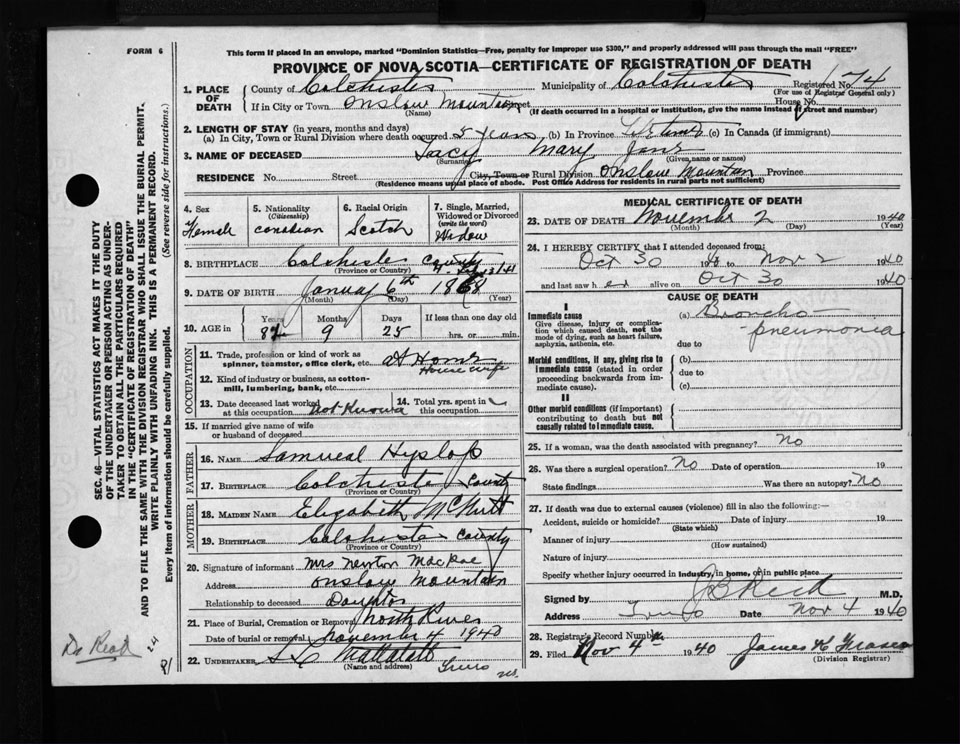 FORM 6
This form if placed in an envelope, marked "Dominion Statistics—Free, penalty for improper use $300," and properly addressed will pass through the mail "FREE"
PROVINCE OF NOVA SCOTIA—CERTIFICATE OF REGISTRATION OF DEATH
1. PLACE OF DEATH
County of Colchester Municipality of Colchester Registered No. 74
(For use of Registrar General only)
If in City or Town Onslow Mountain House No.
(Name) (If death occurred in a hospital or institution, give the name instead of street and number)
2. LENGTH OF STAY (in years, months and days)
(a) In City, Town or Rural Division where death occurred 5 years (b) In Province Lifetime (c) In Canada (if immigrant)
3. NAME OF DECEASED Tacy Mary Jane
(Surname) (Given name or names)
RESIDENCE No. Street City, Town or Rural Division Onslow Mountain Province
(Residence means usual place of abode. Post Office Address for residents in rural parts not sufficient)
4. Sex
Female
5. Nationality
(Citizenship)
Canadian
6. Racial Origin
Scotch
7. Single, Married, Widowed or Divorced
(write the word)
Widow
8. BIRTHPLACE Colchester County
(Province or Country)
9. DATE OF BIRTH January 6th 1868
(Month) (Day) (Year)
10. AGE in Years Months Days If less than one day old
82 9 25 hrs. or min.
OCCUPATION
11. Trade, profession or kind of work as spinner, teamster, office clerk, etc. At Home
House wife
12. Kind of industry or business, as cotton-mill, lumbering, bank, etc.
13. Date deceased last worked at this occupation not Known 14. Total yrs. spent in this occupation
15. If married give name of wife or husband of deceased
FATHER
16. NAME Samueal Hyslop
17. BIRTHPLACE Colchester County
(Province or Country)
MOTHER
18. MAIDEN NAME Elizabeth McNutt
19. BIRTHPLACE Colchester County
(Province or Country)
20. Signature of informant Mrs Newton MacRae
Address Onslow Mountain
Relationship to deceased Daughter
21. Place of Burial, Cremation or Removal North River
Date of burial or removal november 4 1940
22. UNDERTAKER Mattatall Truro
(Name and address) NS.
MEDICAL CERTIFICATE OF DEATH
23. DATE OF DEATH November 2 1940
(Month) (Day) (Year)
24. I HEREBY CERTIFY that I attended deceased from:
Oct 30 to Nov 2 1940
and last saw h er alive on Oct 30 1940
CAUSE OF DEATH
I
Immediate cause
Give disease, injury or complication which caused death, not the mode of dying, such as heart failure, asphyxia, asthenia, etc.
(a) Broncho-pneumonia
due to
Morbid conditions, if any, giving rise to immediate cause (stated in order proceeding backwards from immediate cause).
(b)
due to
(c)
II
Other morbid conditions (if important) contributing to death but not causally related to immediate cause.
25. If a woman, was the death associated with pregnancy? No
26. Was there a surgical operation? No Date of operation 19
State findings Was there an autopsy? No
27. If death was due to external causes (violence) fill in also the following:—
Accident, suicide or homicide? Date of injury 19
(State which)
Manner of injury
(How sustained)
Nature of injury
Specify whether injury occurred in industry, in home, or in public place
Signed by M.D.
Address Truro Date Nov 4 1940
28. Registrar's Record Number
29. Filed Nov 4th 1940 James
(Division Registrar)
SEC. 46—VITAL STATISTICS ACT MAKES IT THE DUTY OF THE UNDERTAKER OR PERSON ACTING AS UNDERTAKER TO OBTAIN ALL THE PARTICULARS REQUIRED IN THE "CERTIFICATE OF REGISTRATION OF DEATH" AND TO FILE THE SAME WITH THE DIVISION REGISTRAR WHO SHALL ISSUE THE BURIAL PERMIT.
WRITE PLAINLY WITH UNFADING INK. THIS IS A PERMANENT RECORD.
Every item of information should be carefully supplied. (See reverse side for instructions.)
Dr Read
24